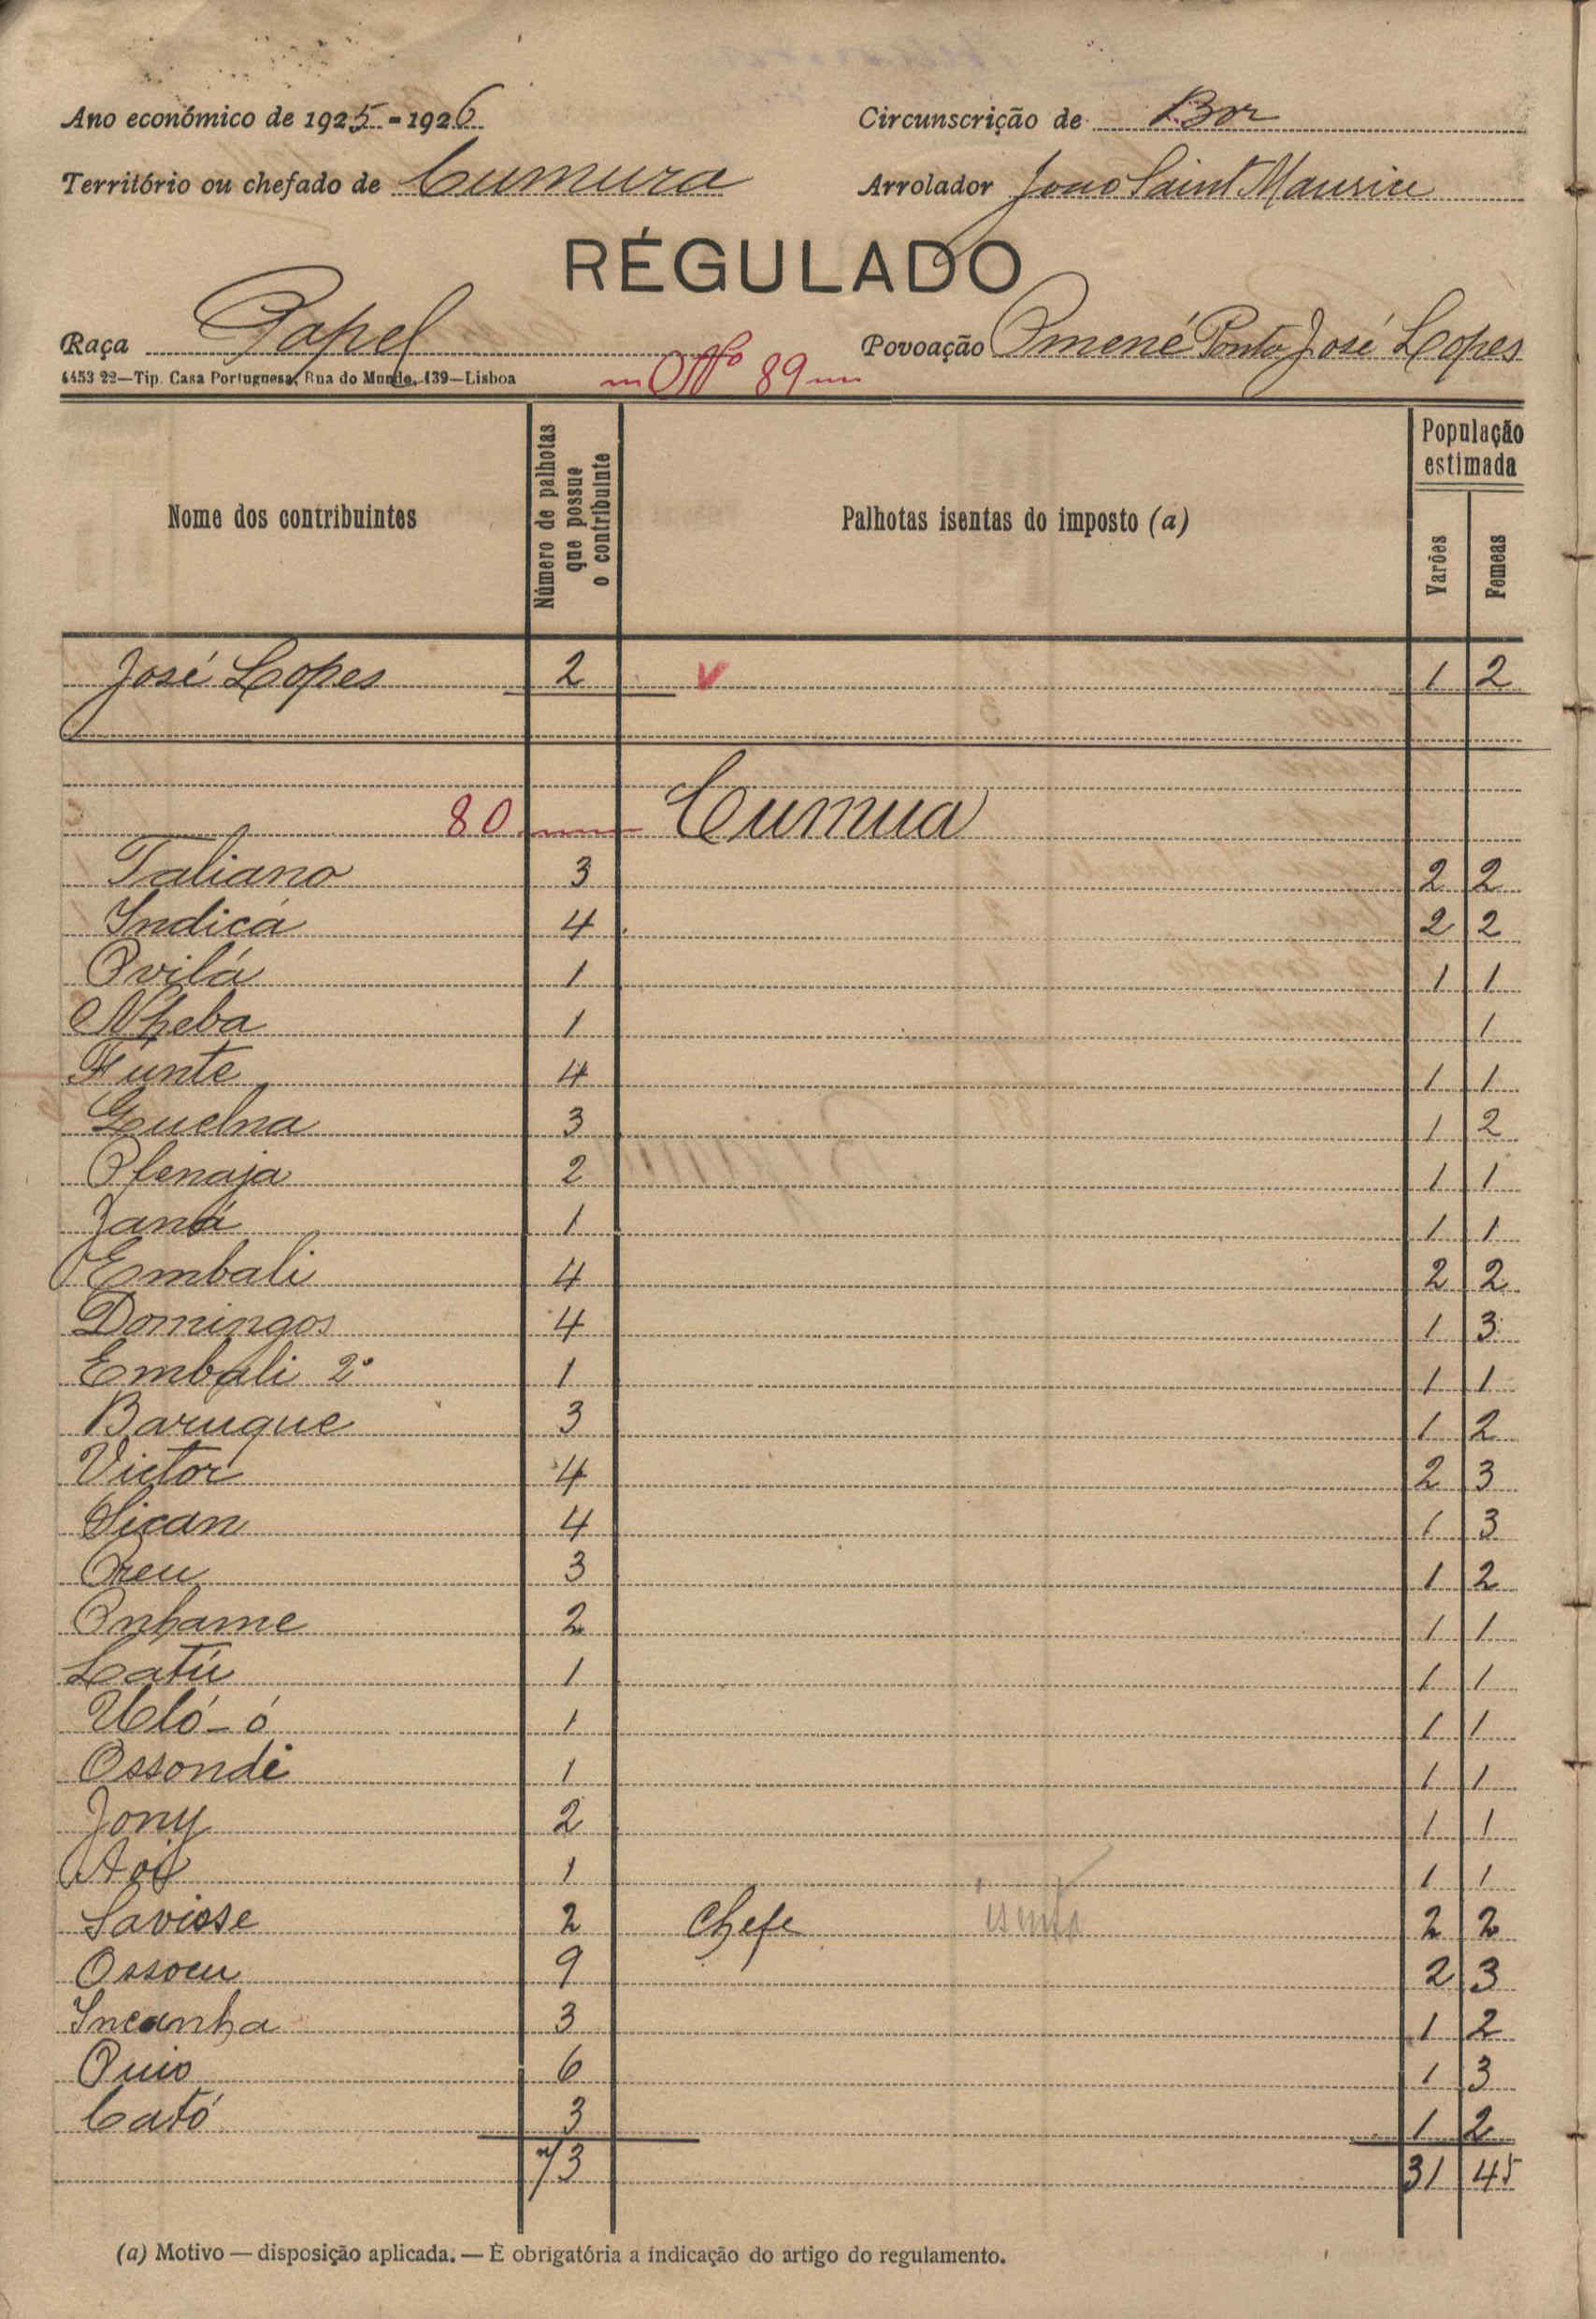 Ano económico de 1925-1926 Circunscrição de Bor
Território ou chefado de Cumura Arrolador Joao Saint Maurice
RÉGULADO
Raça Papel Povoação Omené Ponta José Lopes
6453 22—Tip. Casa Portuguesa, Rua do Mundo, 139—Lisboa Nº 89
Nome dos contribuintes Número de palhotas que possue o contribuinte Palhotas isentas do imposto (a) População estimada Varões Femeas
José Lopes 2 v 1 2
80 Cumua
Taliano 3 2 2
Indicá 4 2 2
Ovilá 1 1 1
Nheba 1 1
Funte 4 1 1
3 1 2
2 1 1
Janá 1 1 1
Embali 4 2 2
Domingos 4 1 3
Embali 2º 1 1 1
Baruque 3 1 2
Victor 4 2 3
Sican 4 1 3
Oreu 3 1 2
Onhame 2 1 1
Latú 1 1 1
Uló-ó 1 1 1
Ossondé 1 1 1
Jony 2 1 1
1 1 1
Saviosse 2 Chefe isento 2 2
Ossocu 9 2 3
Incanha 3 1 2
Ouio 6 1 3
Cató 3 1 2
73 31 45
(a) Motivo — disposição aplicada. — É obrigatória a indicação do artigo do regulamento.